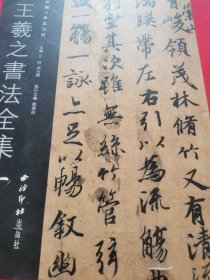 峻領茂林脩竹又有清
湍暎帶左右引以為流觴
坐其次雖無絲竹管弦
一觴一詠亦足以暢敘幽
王羲之書法全集
一
西泠印社出版社